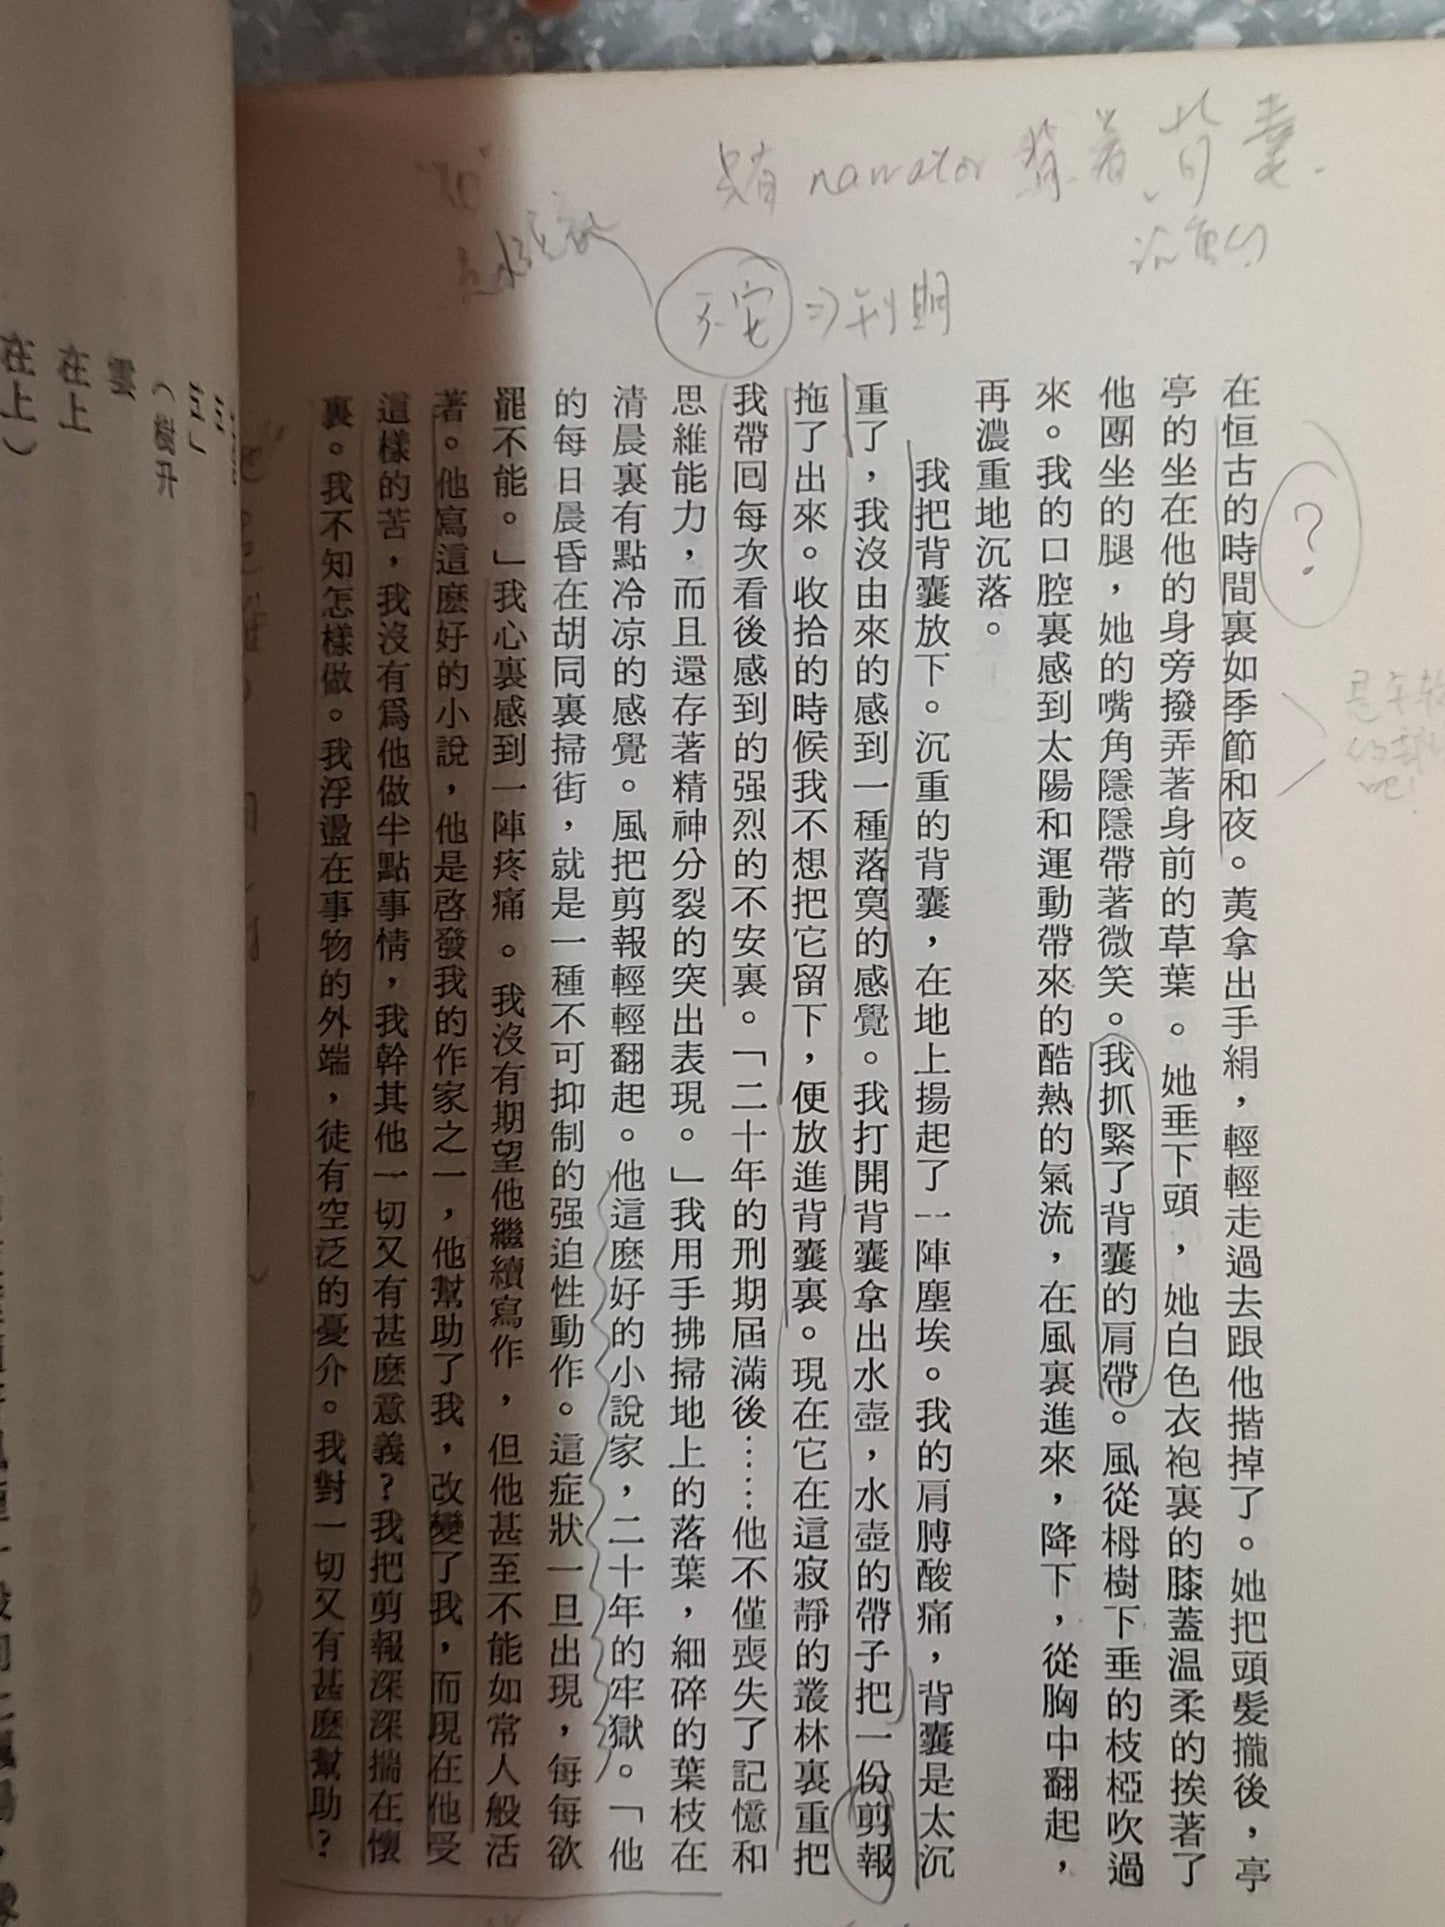 只有 narrator 背着背囊.
沉重的
不安 => 刊期
?
在恒古的時間裏如季節和夜。荑拿出手絹，輕輕走過去跟他揩掉了。她把頭髮攏後，亭
亭的坐在他的身旁撥弄著身前的草葉。她垂下頭，她白色衣袍裏的膝蓋溫柔的挨著了
他團坐的腿，她的嘴角隱隱帶著微笑。我抓緊了背囊的肩帶。風從栂樹下垂的枝椏吹過
來。我的口腔裏感到太陽和運動帶來的酷熱的氣流，在風裏進來，降下，從胸中翻起，
再濃重地沉落。
我把背囊放下。沉重的背囊，在地上揚起了一陣塵埃。我的肩膊酸痛，背囊是太沉
重了，我沒由來的感到一種落寞的感覺。我打開背囊拿出水壺，水壺的帶子把一份剪報
拖了出來。收拾的時候我不想把它留下，便放進背囊裏。現在它在這寂靜的叢林裏重把
我帶囘每次看後感到的强烈的不安裏。「二十年的刑期屆滿後……他不僅喪失了記憶和
思維能力，而且還存著精神分裂的突出表現。」我用手拂掃地上的落葉，細碎的葉枝在
清晨裏有點冷凉的感覺。風把剪報輕輕翻起。他這麽好的小說家，二十年的牢獄。「他
的每日晨昏在胡同裏掃街，就是一種不可抑制的强迫性動作。這症狀一旦出現，每每欲
罷不能。」我心裏感到一陣疼痛。我沒有期望他繼續寫作，但他甚至不能如常人般活
著。他寫這麽好的小說，他是啓發我的作家之一，他幫助了我，改變了我，而現在他受
這樣的苦，我沒有爲他做半點事情，我幹其他一切又有甚麽意義？我把剪報深深揣在懷
裏。我不知怎樣做。我浮盪在事物的外端，徒有空泛的憂介。我對一切又有甚麽幫助？
（樹升
雲
在上
在上）